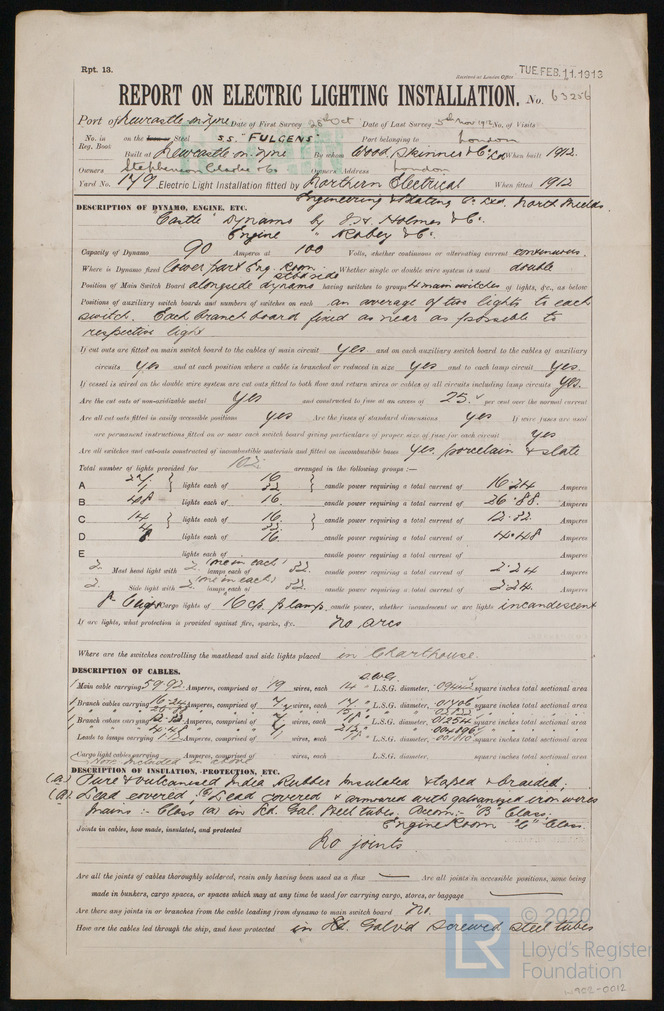 Rpt. 13.
Received at London Office TUE. FEB. 11. 1913
REPORT ON ELECTRIC LIGHTING INSTALLATION. No. 63256
Port of Newcastle on Tyne Date of First Survey 26th Oct Date of Last Survey 5th Nov 1912 No. of Visits
No. in Reg. Book on the Iron or Steel S.S. "FULGENS" Port belonging to London
Built at Newcastle on Tyne By whom Wood, Skinner & Co Ld When built 1912.
Owners Stephenson Clarke & Co Owners' Address London
Yard No. 179 Electric Light Installation fitted by Northern Electrical When fitted 1912
Engineering & Plating Co Ltd. North Shields
DESCRIPTION OF DYNAMO, ENGINE, ETC.
"Castle" Dynamo by J. H. Holmes & Co.
Engine " Robey & Co.
Capacity of Dynamo 90 Amperes at 100 Volts, whether continuous or alternating current continuous.
Where is Dynamo fixed Lower part Eng. Room Stbd side Whether single or double wire system is used double
Position of Main Switch Board alongside dynamo having switches to groups 4 main switches of lights, &c., as below
Positions of auxiliary switch boards and numbers of switches on each an average of two lights to each
switch. Each branch board fixed as near as possible to
respective light
If cut outs are fitted on main switch board to the cables of main circuit yes and on each auxiliary switch board to the cables of auxiliary
circuits yes and at each position where a cable is branched or reduced in size yes and to each lamp circuit yes.
If vessel is wired on the double wire system are cut outs fitted to both flow and return wires or cables of all circuits including lamp circuits yes.
Are the cut outs of non-oxidizable metal yes and constructed to fuse at an excess of 25. per cent over the normal current
Are all cut outs fitted in easily accessible positions yes Are the fuses of standard dimensions yes If wire fuses are used
are permanent instructions fitted on or near each switch board giving particulars of proper size of fuse for each circuit yes
Are all switches and cut-outs constructed of incombustible materials and fitted on incombustible bases yes, porcelain & slate
Total number of lights provided for 102 arranged in the following groups :—
A 27 } lights each of 16 } candle power requiring a total current of 16.24 Amperes
1 32
B 48 lights each of 16 candle power requiring a total current of 26.88. Amperes
C 14 } lights each of 16 } candle power requiring a total current of 12.32 Amperes
4 32
D 8 lights each of 16 candle power requiring a total current of 4.48 Amperes
E lights each of candle power requiring a total current of Amperes
2 Mast head light with 2 (one in each) lamps each of 32 candle power requiring a total current of 2.24 Amperes
2 Side light with 2 (one in each) lamps each of 32 candle power requiring a total current of 2.24 Amperes
8 Cargo lights of 16 c.p. lamps candle power, whether incandescent or arc lights incandescent
If arc lights, what protection is provided against fire, sparks, &c. no arcs
Where are the switches controlling the masthead and side lights placed in Charthouse.
DESCRIPTION OF CABLES.
1 Main cable carrying 59.92 Amperes, comprised of 19 wires, each 14 L.S.G. diameter, .09442 square inches total sectional area
1 Branch cables carrying 16.24 Amperes, comprised of 7 wires, each 17 L.S.G. diameter, .01706 square inches total sectional area
1 Branch cables carrying 12.32 Amperes, comprised of 7 wires, each 18 L.S.G. diameter, .01254 square inches total sectional area
Leads to lamps carrying Amperes, comprised of 1 wires, each 18 L.S.G. diameter, .001810 square inches total sectional area
Cargo light cables carrying Amperes, comprised of wires, each L.S.G. diameter, square inches total sectional area
included in above
DESCRIPTION OF INSULATION, PROTECTION, ETC.
(a) Pure & vulcanised India Rubber insulated & taped & braided;
(B) Lead covered, (C) Lead covered & armoured with galvanized iron wires
Mains :- Class (a) in Ld. Gal. steel tubes, Accom:- "B" Class.
Engine Room "C" Class.
Joints in cables, how made, insulated, and protected
No joints
Are all the joints of cables thoroughly soldered, resin only having been used as a flux — Are all joints in accessible positions, none being
made in bunkers, cargo spaces, or spaces which may at any time be used for carrying cargo, stores, or baggage —
Are there any joints in or branches from the cable leading from dynamo to main switch board No.
How are the cables led through the ship, and how protected in Ld. Galvd screwed steel tubes
LR © 2020
Lloyd's Register
Foundation
902-0012